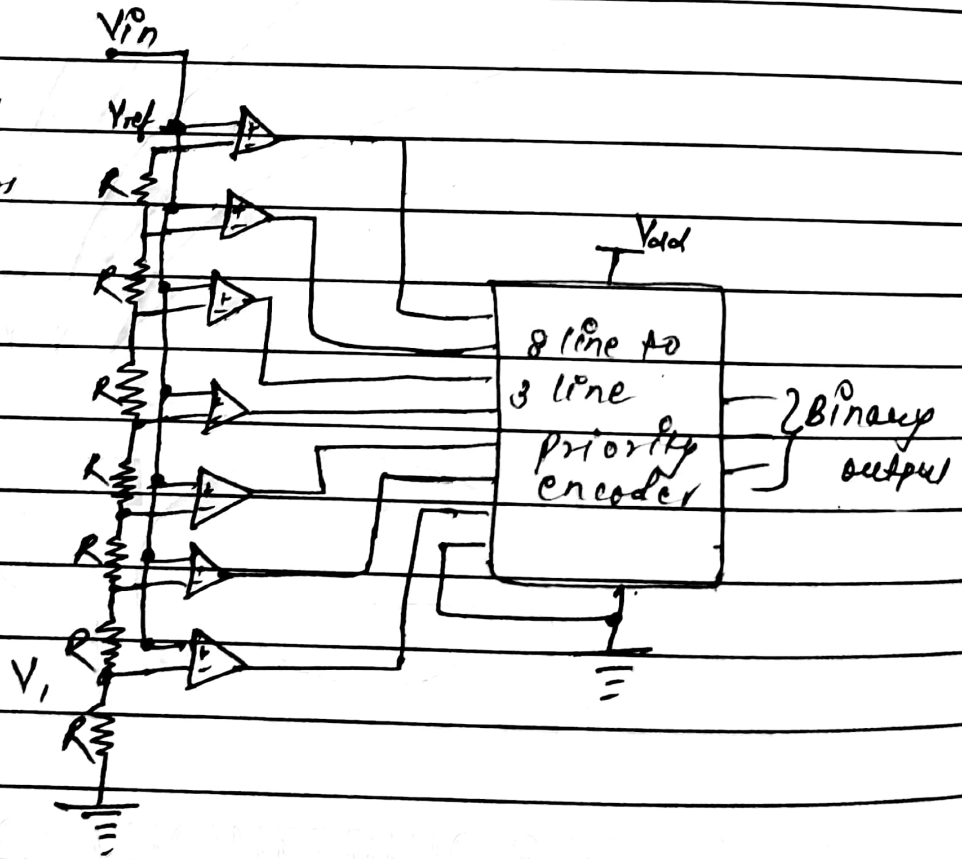 Vin
Vref
R
R
R
R
R
R
R
V1
Vdd
8 line to
3 line
priority
encoder
Binary
output
+
-
+
-
+
-
+
-
+
-
+
-
+
-